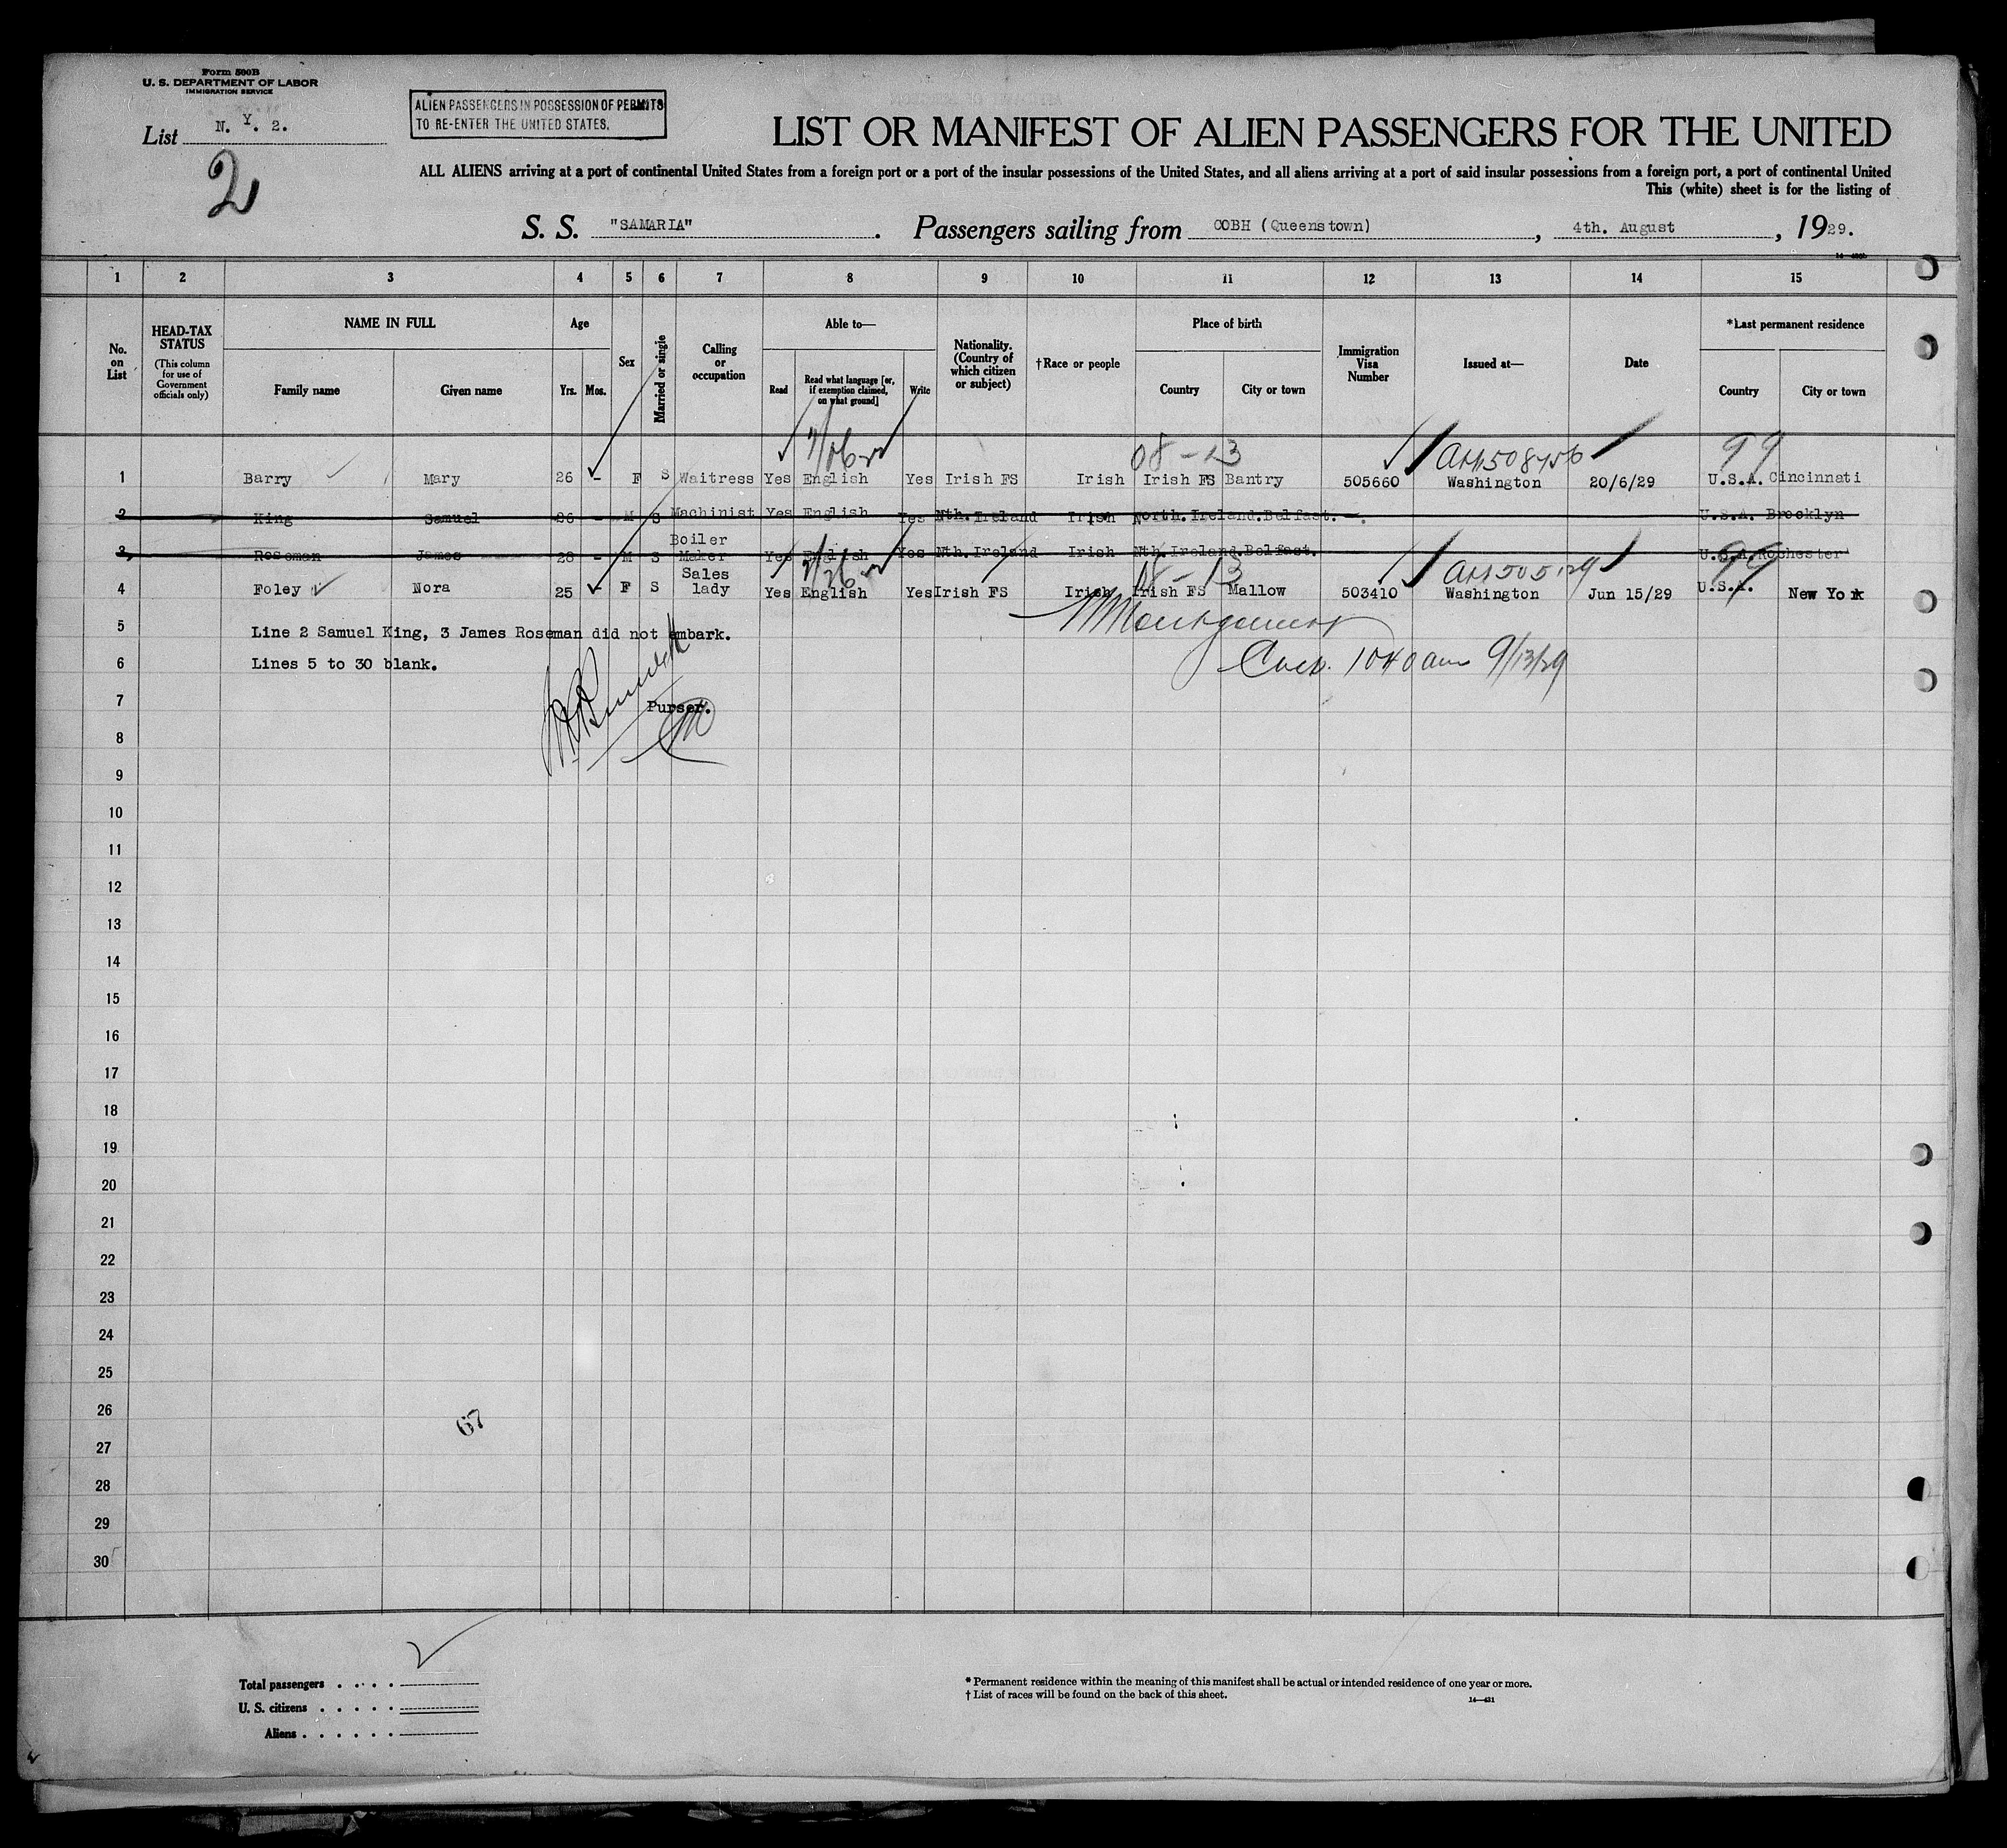 Form 500B
U. S. DEPARTMENT OF LABOR
IMMIGRATION SERVICE
List N. Y. 2.
2
ALIEN PASSENGERS IN POSSESSION OF PERMITS
TO RE-ENTER THE UNITED STATES.
LIST OR MANIFEST OF ALIEN PASSENGERS FOR THE UNITED
ALL ALIENS arriving at a port of continental United States from a foreign port or a port of the insular possessions of the United States, and all aliens arriving at a port of said insular possessions from a foreign port, a port of continental United
This (white) sheet is for the listing of
S. S. "SAMARIA" . Passengers sailing from COBH (Queenstown) , 4th. August , 1929.
1 2 3 4 5 6 7 8 9 10 11 12 13 14 15
No. on List
HEAD-TAX STATUS
(This column for use of Government officials only)
NAME IN FULL
Family name Given name
Age
Yrs. Mos.
Sex
Married or single
Calling or occupation
Able to—
Read
Read what language [or, if exemption claimed, on what ground]
Write
Nationality. (Country of which citizen or subject)
†Race or people
Place of birth
Country City or town
Immigration Visa Number
Issued at—
Date
*Last permanent residence
Country City or town
08-13 99
1 Barry Mary 26 - F S Waitress Yes English Yes Irish FS Irish Irish FS Bantry 505660 Washington 20/6/29 U.S.A. Cincinnati
2 King Samuel 26 - M S Machinist Yes English Yes Nth. Ireland Irish North. Ireland. Belfast. U.S.A. Brooklyn
3 Roseman James 28 - M S Boiler Maker Yes English Yes Nth. Ireland Irish Nth. Ireland. Belfast. U.S.A. Rochester
08-13 99
4 Foley Nora 25 - F S Sales lady Yes English Yes Irish FS Irish Irish FS Mallow 503410 Washington Jun 15/29 U.S.A. New York
5 Line 2 Samuel King, 3 James Roseman did not embark.
Montgomery
6 Lines 5 to 30 blank.
1040 am 9/13/29
7 Purser.
8
9
10
11
12
13
14
15
16
17
18
19
20
21
22
23
24
25
26
67
27
28
29
30
Total passengers
U. S. citizens
Aliens
* Permanent residence within the meaning of this manifest shall be actual or intended residence of one year or more.
† List of races will be found on the back of this sheet.
14—431